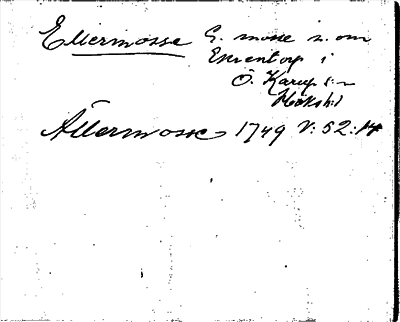 Ellermosse G. mosse n. om
Enentorp i
Ö. Karup s:n
Höks hd
Ällermosse 1749 V:52:14